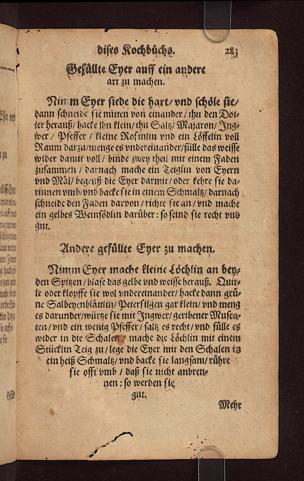 dises Kochbuchs. 283
Gefüllte Eyer auff ein andere
art zu machen.
Nimm Eyer siede die hart/ vnd schöle sie/
dann schneide sie mitten von einander/ thu den Dot-
ter herauß/ hacke ihn klein/ thu Saltz/ Majaron/ Ing-
wer/ Pfeffer/ kleine Rosinlin vnd ein Löffelin voll
Raum darzu/ menge es vndereinander/ fülle das weisse
wider damit voll/ binde zwey theil mit einem Faden
zusammen/ darnach mache ein Teiglin von Eyern
vnd Mäl/ begeuß die Eyer darmit/ oder kehre sie da-
rinnen vmb/ vnd backe sie in einem Schmaltz/ darnach
schneide den Faden darvon/ richte sie an/ vnd mache
ein gelbes Weinsödlin darüber: so seind sie recht vnd
gut.
Andere gefüllte Eyer zu machen.
Nimm Eyer mache kleine Löchlin an bey-
den Spitzen/ blase das gelbe vnd weisse herauß. Quir-
le oder klopffe sie wol vndereinander/ hacke dann grü-
ne Salbeyenblätlin/ Petersilgen gar klein/ vnd meng
es darunder/ würge sie mit Ingwer/ geribener Musca-
ten/ vnd ein wenig Pfeffer/ saltz es recht/ vnd fülle es
wider in die Schalen/ mache die Löchlin mit einem
Stücklin Teig zu/ lege die Eyer mit den Schalen in
ein heiß Schmaltz/ vnd backe sie langsam/ rühre
sie offt vmb/ daß sie nicht anbren-
nen: so werden sie
gut.
Mehr